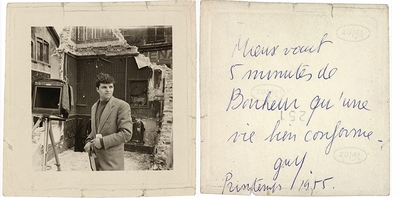 Mieux vaut
5 minutes de
Bonheur qu'une
vie bien conforme -
guy
Printemps 1955.
251